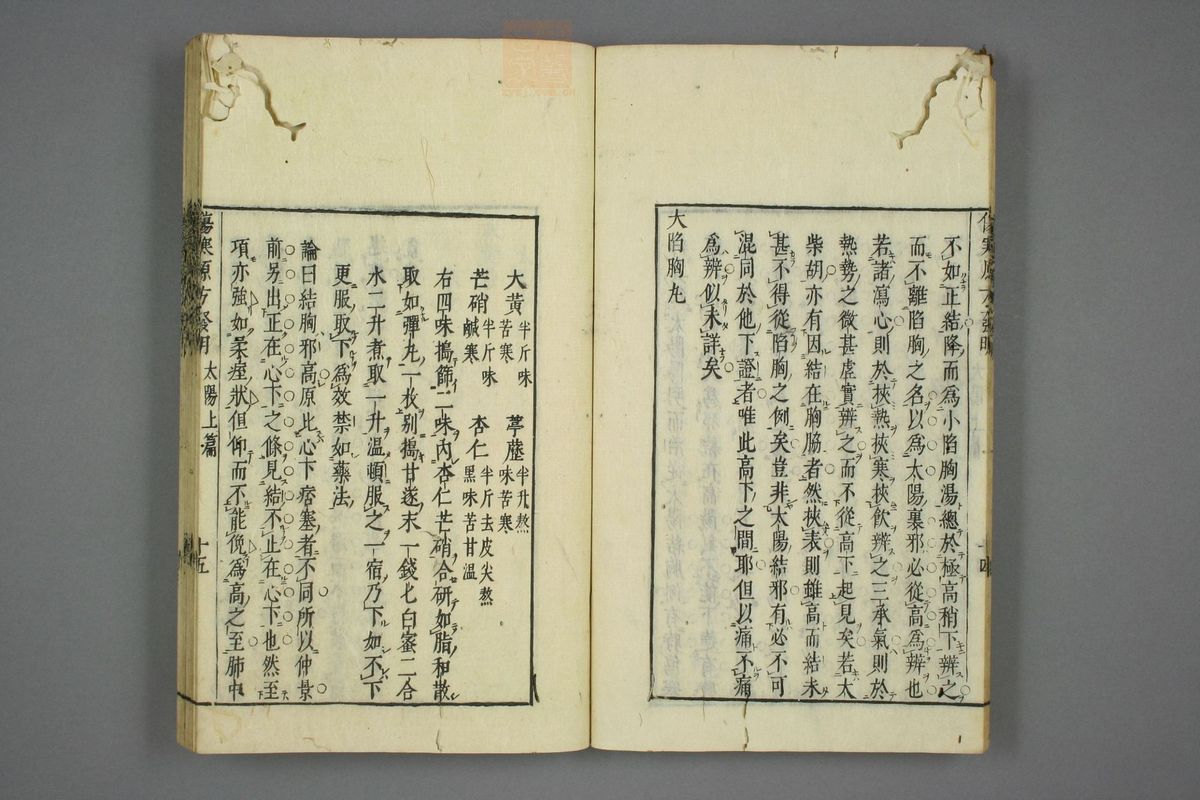 不如正結降而爲小陷胸湯總於極高稍下辨之
而不離陷胸之名以爲太陽裏邪必從高爲辨也
若諸瀉心則於挾熱挾寒挾飲辨之三承氣則於
熱勢之微甚虛實辨之而不從高下起見矣若大
柴胡亦有因結在胸脇者然挾表則雖高而結未
甚不得從陷胸之例矣豈非太陽結邪有必不可
混同於他下證者唯此高下之間耶但以痛不痛
爲辨似未詳矣
大陷胸丸
大黃 半斤味苦寒 葶藶 半升熬味苦寒
芒硝 半斤味鹹寒 杏仁 半斤去皮尖熬黑味苦甘溫
右四味搗篩二味內杏仁芒硝合研如脂和散
取如彈丸一枚別搗甘遂末一錢匕白蜜二合
水二升煮取一升温頓服之一宿乃下如不下
更服取下爲效禁如藥法
論曰結胸邪高原比心下痞塞者不同所以仲景
前另出正在心下之條見結不止在心下也然至
項亦強如柔痙狀但仰而不能俛爲高之至肺中
傷寒原方發明 太陽上篇 十五